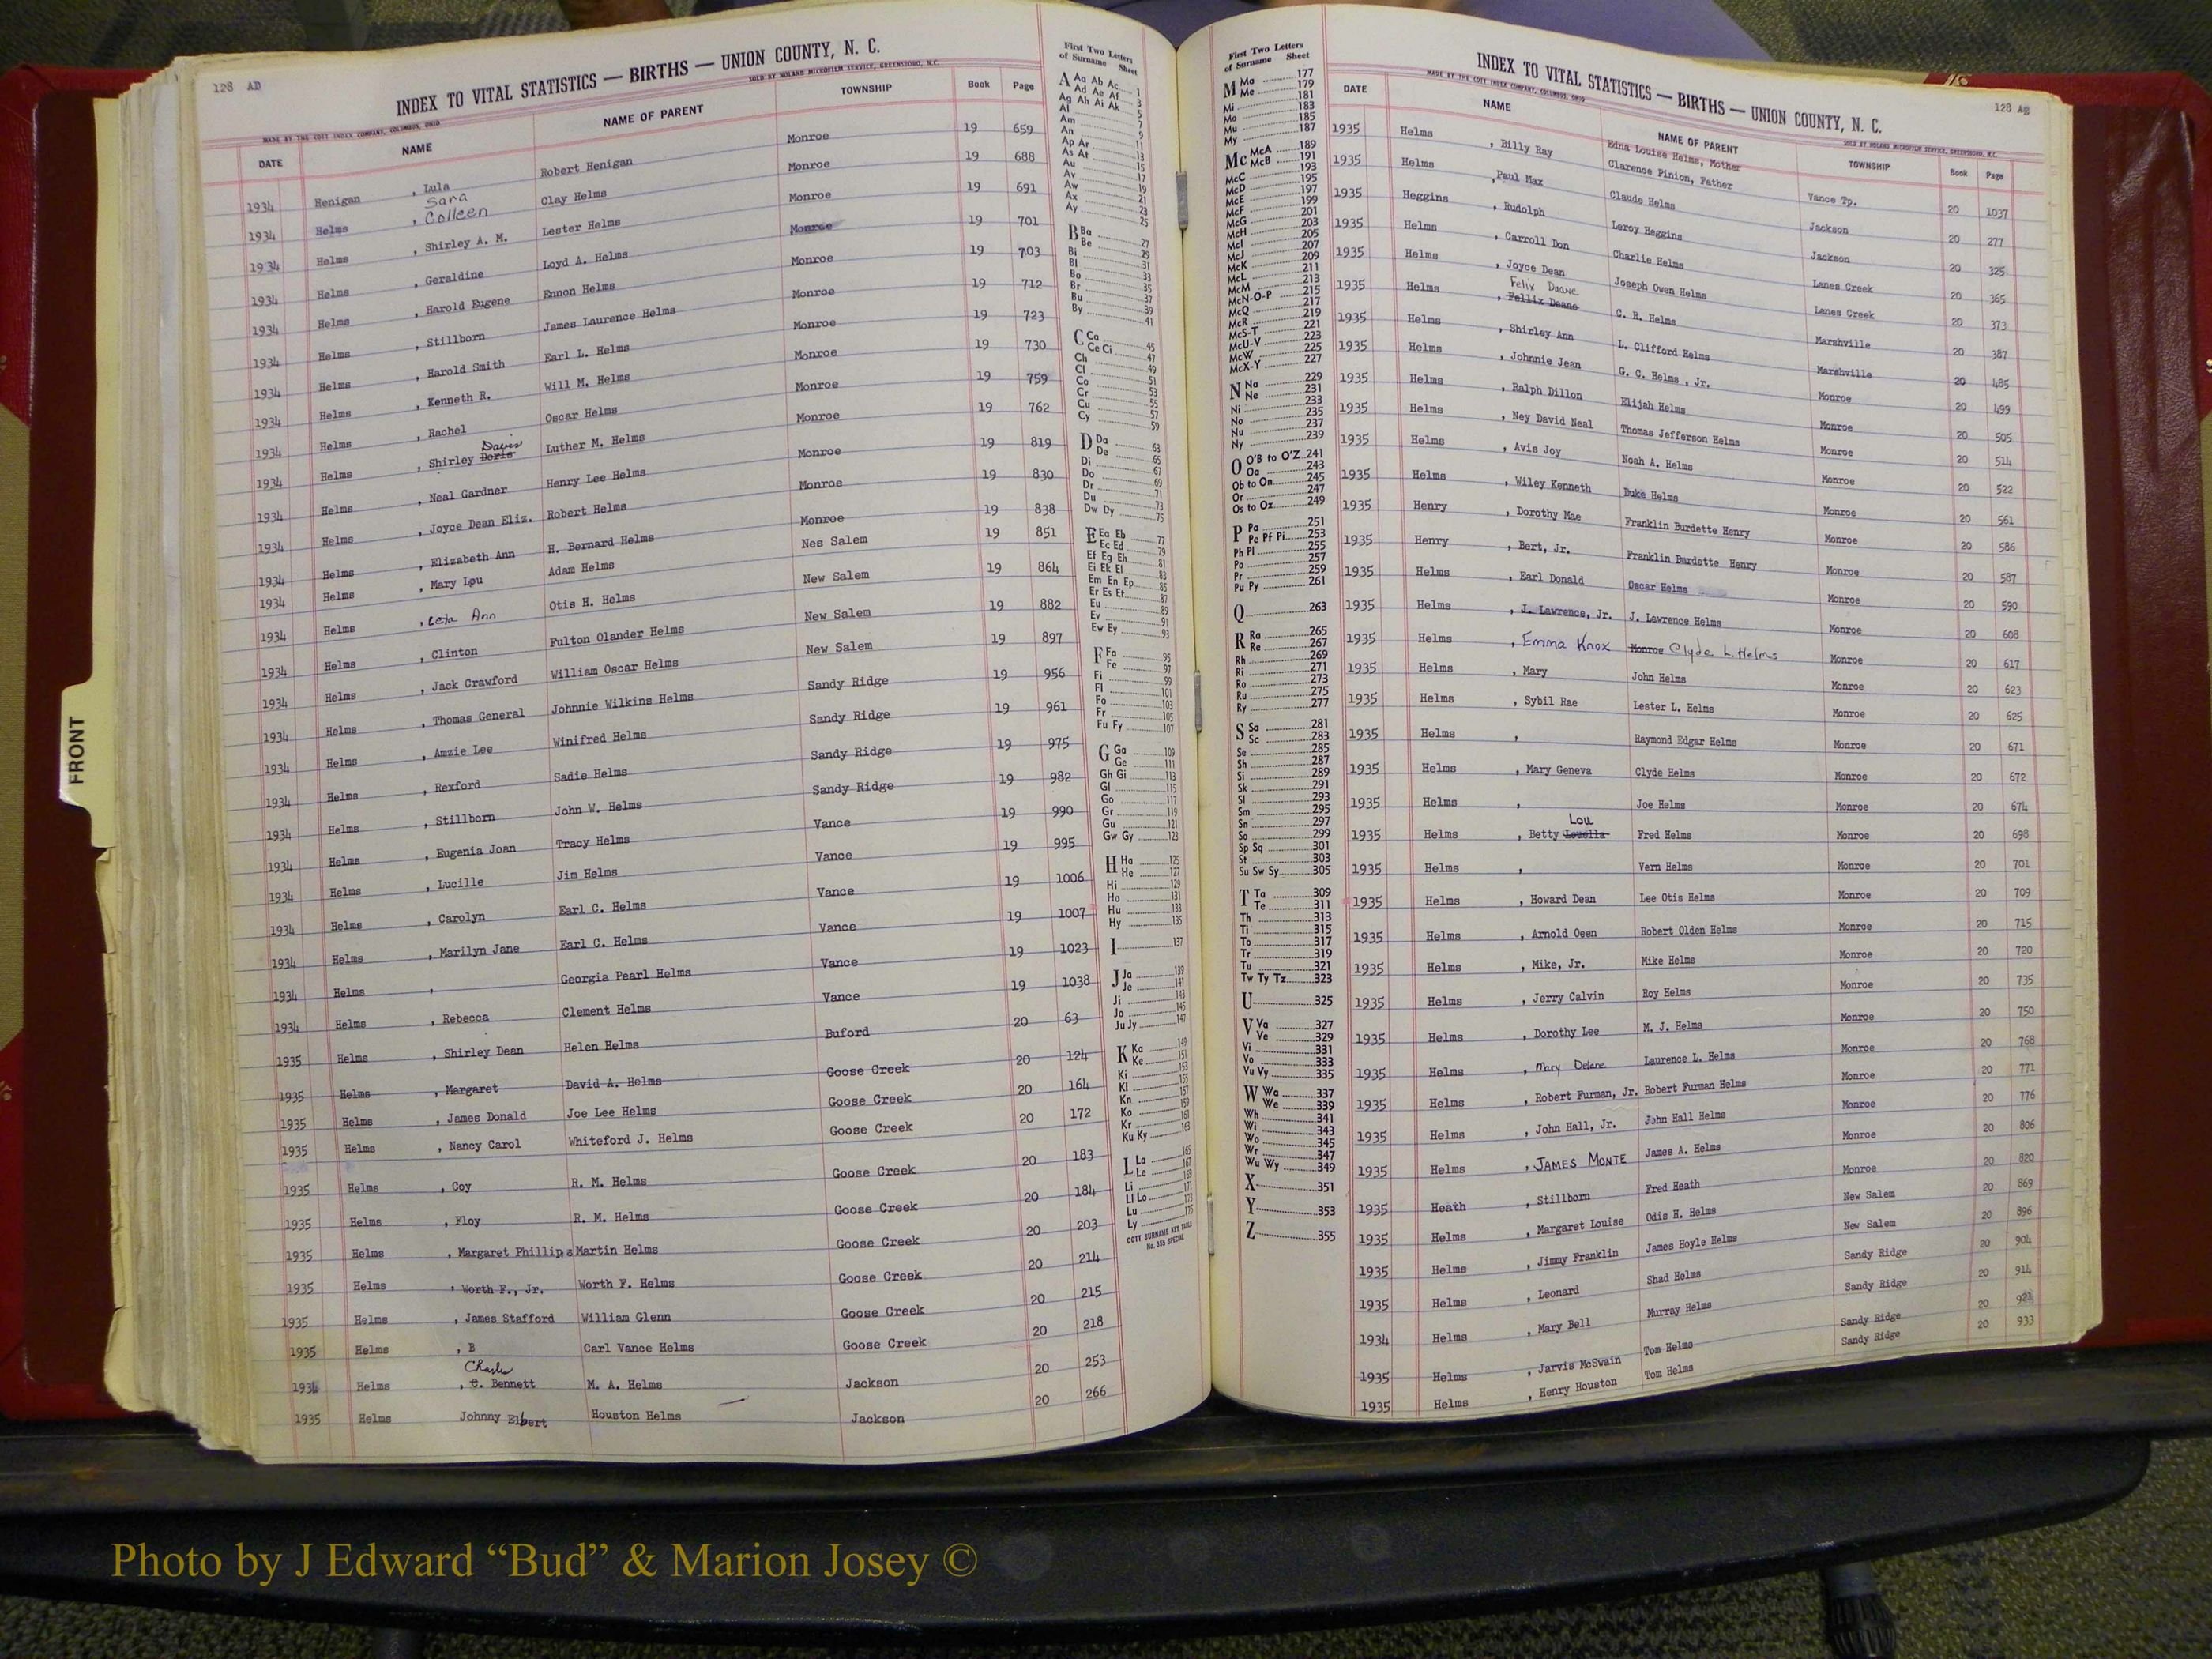 128 AD
INDEX TO VITAL STATISTICS — BIRTHS — UNION COUNTY, N. C.
MADE BY THE COTT INDEX COMPANY, COLUMBUS, OHIO
SOLD BY NOLAND MICROFILM SERVICE, GREENSBORO, N.C.
DATE NAME NAME OF PARENT TOWNSHIP Book Page
1934 Henigan , Lula Robert Henigan Monroe 19 659
1934 Helms , Sara Colleen Clay Helms Monroe 19 688
1934 Helms , Shirley A. M. Lester Helms Monroe 19 691
1934 Helms , Geraldine Loyd A. Helms Monroe 19 701
1934 Helms , Harold Eugene Ennon Helms Monroe 19 703
1934 Helms , Stillborn James Laurence Helms Monroe 19 712
1934 Helms , Harold Smith Earl L. Helms Monroe 19 723
1934 Helms , Kenneth R. Will M. Helms Monroe 19 730
1934 Helms , Rachel Oscar Helms Monroe 19 759
1934 Helms , Shirley Doris Davis Luther M. Helms Monroe 19 762
1934 Helms , Neal Gardner Henry Lee Helms Monroe 19 819
1934 Helms , Joyce Dean Eliz. Robert Helms Monroe 19 830
1934 Helms , Elizabeth Ann H. Bernard Helms Monroe 19 838
1934 Helms , Mary Lou Adam Helms Nes Salem 19 851
1934 Helms , Ann Otis H. Helms New Salem 19 864
1934 Helms , Clinton Fulton Olander Helms New Salem 19 882
1934 Helms , Jack Crawford William Oscar Helms New Salem 19 897
1934 Helms , Thomas General Johnnie Wilkins Helms Sandy Ridge 19 956
1934 Helms , Amzie Lee Winifred Helms Sandy Ridge 19 961
1934 Helms , Rexford Sadie Helms Sandy Ridge 19 975
1934 Helms , Stillborn John W. Helms Sandy Ridge 19 982
1934 Helms , Eugenia Joan Tracy Helms Vance 19 990
1934 Helms , Lucille Jim Helms Vance 19 995
1934 Helms , Carolyn Earl C. Helms Vance 19 1006
1934 Helms , Marilyn Jane Earl C. Helms Vance 19 1007
1934 Helms , Georgia Pearl Helms Vance 19 1023
1934 Helms , Rebecca Clement Helms Vance 19 1038
1935 Helms , Shirley Dean Helen Helms Buford 20 63
1935 Helms , Margaret David A. Helms Goose Creek 20 124
1935 Helms , James Donald Joe Lee Helms Goose Creek 20 164
1935 Helms , Nancy Carol Whiteford J. Helms Goose Creek 20 172
1935 Helms , Coy R. M. Helms Goose Creek 20 183
1935 Helms , Floy R. M. Helms Goose Creek 20 184
1935 Helms , Margaret Phillips Martin Helms Goose Creek 20 203
1935 Helms , Worth F., Jr. Worth F. Helms Goose Creek 20 214
1935 Helms , James Stafford William Glenn Goose Creek 20 215
1935 Helms , B Carl Vance Helms Goose Creek 20 218
1934 Helms , C. Bennett M. A. Helms Jackson 20 253
1935 Helms Johnny Elbert Houston Helms Jackson 20 266
First Two Letters
of Surname Sheet
A Aa Ab Ac 1
Ad Ae Af 3
Ag Ah Ai Ak 5
Al 7
Am 9
An 11
Ap Ar 13
As At 15
Au 17
Av 19
Aw 21
Ax 23
Ay 25
B Ba 27
Be 29
Bi 31
Bl 33
Bo 35
Br 37
Bu 39
By 41
C Ca 45
Ce Ci 47
Ch 49
Cl 51
Co 53
Cr 55
Cu 57
Cy 59
D Da 63
De 65
Di 67
Do 69
Dr 71
Du 73
Dw Dy 75
E Ea Eb 77
Ec Ed 79
Ef Eg Eh 81
Ei Ek El 83
Em En Ep 85
Er Es Et 87
Eu 89
Ev 91
Ew Ey 93
F Fa 95
Fe 97
Fi 99
Fl 101
Fo 103
Fr 105
Fu Fy 107
G Ga 109
Ge 111
Gh Gi 113
Gl 115
Go 117
Gr 119
Gu 121
Gw Gy 123
H Ha 125
He 127
Hi 129
Ho 131
Hu 133
Hy 135
I 137
J Ja 139
Je 141
Ji 143
Jo 145
Ju Jy 147
K Ka 149
Ke 151
Ki 153
Kl 155
Kn 157
Ko 159
Kr 161
Ku Ky 163
L La 165
Le 167
Li 169
Ll Lo 171
Lu 173
Ly 175
COTT SURNAME KEY TABLE
No. 355 SPECIAL
FRONT
First Two Letters
of Surname Sheet
M Ma 177
Me 179
Mi 181
Mo 183
Mu 185
My 187
Mc McA 189
McB 191
McC 193
McD 195
McE 197
McF 199
McG 201
McH 203
McI 205
McJ 207
McK 209
McL 211
McM 213
McN-O-P 215
McQ 217
McR 219
McS-T 221
McU-V 223
McW 225
McX-Y 227
N Na 229
Ne 231
Ni 233
No 235
Nu 237
Ny 239
O O'B to O'Z 241
Oa 243
Ob to On 245
Or 247
Os to Oz 249
P Pa 251
Pe Pf Pi 253
Ph Pl 255
Po 257
Pr 259
Pu Py 261
Q 263
R Ra 265
Re 267
Rh 269
Ri 271
Ro 273
Ru 275
Ry 277
S Sa 281
Sc 283
Se 285
Sh 287
Si 289
Sk 291
Sl 293
Sm 295
Sn 297
So 299
Sp Sq 301
St 303
Su Sw Sy 305
T Ta 309
Te 311
Th 313
Ti 315
To 317
Tr 319
Tu 321
Tw Ty Tz 323
U 325
V Va 327
Ve 329
Vi 331
Vo 333
Vu Vy 335
W Wa 337
We 339
Wh 341
Wi 343
Wo 345
Wr 347
Wu Wy 349
X 351
Y 353
Z 355
INDEX TO VITAL STATISTICS — BIRTHS — UNION COUNTY, N. C.
128 Ag
MADE BY THE COTT INDEX COMPANY, COLUMBUS, OHIO
SOLD BY NOLAND MICROFILM SERVICE, GREENSBORO, N.C.
DATE NAME NAME OF PARENT TOWNSHIP Book Page
Edna Louise Helms, Mother
1935 Helms , Billy Ray Clarence Pinion, Father Vance Tp. 20 1037
1935 Helms , Paul Max Claude Helms Jackson 20 277
1935 Heggins , Rudolph Leroy Heggins Jackson 20 325
1935 Helms , Carroll Don Charlie Helms Lanes Creek 20 365
1935 Helms , Joyce Dean Joseph Owen Helms Lanes Creek 20 373
Felix Duane
1935 Helms , Fellix Deane C. R. Helms Marshville 20 387
1935 Helms , Shirley Ann L. Clifford Helms Marshville 20 485
1935 Helms , Johnnie Jean G. C. Helms , Jr. Monroe 20 499
1935 Helms , Ralph Dillon Elijah Helms Monroe 20 505
1935 Helms , Ney David Neal Thomas Jefferson Helms Monroe 20 514
1935 Helms , Avis Joy Noah A. Helms Monroe 20 522
1935 Helms , Wiley Kenneth Duke Helms Monroe 20 561
1935 Henry , Dorothy Mae Franklin Burdette Henry Monroe 20 586
1935 Henry , Bert, Jr. Franklin Burdette Henry Monroe 20 587
1935 Helms , Earl Donald Oscar Helms Monroe 20 590
1935 Helms , J. Lawrence, Jr. J. Lawrence Helms Monroe 20 608
1935 Helms , Emma Knox Monroe Clyde L. Helms Monroe 20 617
1935 Helms , Mary John Helms Monroe 20 623
1935 Helms , Sybil Rae Lester L. Helms Monroe 20 625
1935 Helms , Raymond Edgar Helms Monroe 20 671
1935 Helms , Mary Geneva Clyde Helms Monroe 20 672
1935 Helms , Joe Helms Monroe 20 674
Lou
1935 Helms , Betty Louella Fred Helms Monroe 20 698
1935 Helms , Vern Helms Monroe 20 701
1935 Helms , Howard Dean Lee Otis Helms Monroe 20 709
1935 Helms , Arnold Ogen Robert Olden Helms Monroe 20 715
1935 Helms , Mike, Jr. Mike Helms Monroe 20 720
1935 Helms , Jerry Calvin Roy Helms Monroe 20 735
1935 Helms , Dorothy Lee M. J. Helms Monroe 20 750
1935 Helms , Mary Delane Laurence L. Helms Monroe 20 768
1935 Helms , Robert Furman, Jr. Robert Furman Helms Monroe 20 771
1935 Helms , John Hall, Jr. John Hall Helms Monroe 20 776
1935 Helms , JAMES MONTE James A. Helms Monroe 20 806
1935 Heath , Stillborn Fred Heath Monroe 20 820
1935 Helms , Margaret Louise Odis H. Helms New Salem 20 869
1935 Helms , Jimmy Franklin James Hoyle Helms New Salem 20 896
1935 Helms , Leonard Shad Helms Sandy Ridge 20 904
1934 Helms , Mary Bell Murray Helms Sandy Ridge 20 914
1935 Helms , Jarvis McSwain Tom Helms Sandy Ridge 20
1935 Helms , Henry Houston Tom Helms Sandy Ridge 20 933
Photo by J Edward “Bud” & Marion Josey ©